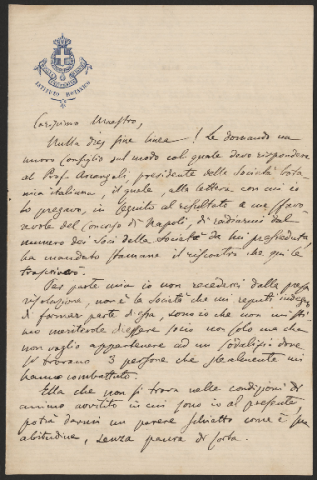 ISTITUTO BOTANICO
Carissimo Maestro,
Nulla dies sine linea! Le domando un
nuovo consiglio sul modo col quale devo rispondere
al Prof. Arcangeli, presidente della Società bota
nica italiana, il quale, alla lettera con cui io
lo pregavo, in seguito al risultato a me sfavo
revole del Concorso di Napoli, di radiarmi dal
numero dei Soci della Società da lui presieduta,
ha mandato stamane il riscontro che qui le
trascrivo.
Per parte mia io non recederei dalla presa
risoluzione, non è la Società che mi reputi indegno
di formar parte di essa, sono io che non mi sti
mo meritevole di essere socio non solo ma che
non voglio appartenere ad un sodalizio dove
si trovano 3 persone che slealmente mi
hanno combattuto.
Ella che non si trova nelle condizioni di
animo avvilito in cui sono io al presente,
potrà darmi un parere schietto come è sua
abitudine, senza paura di sorta.